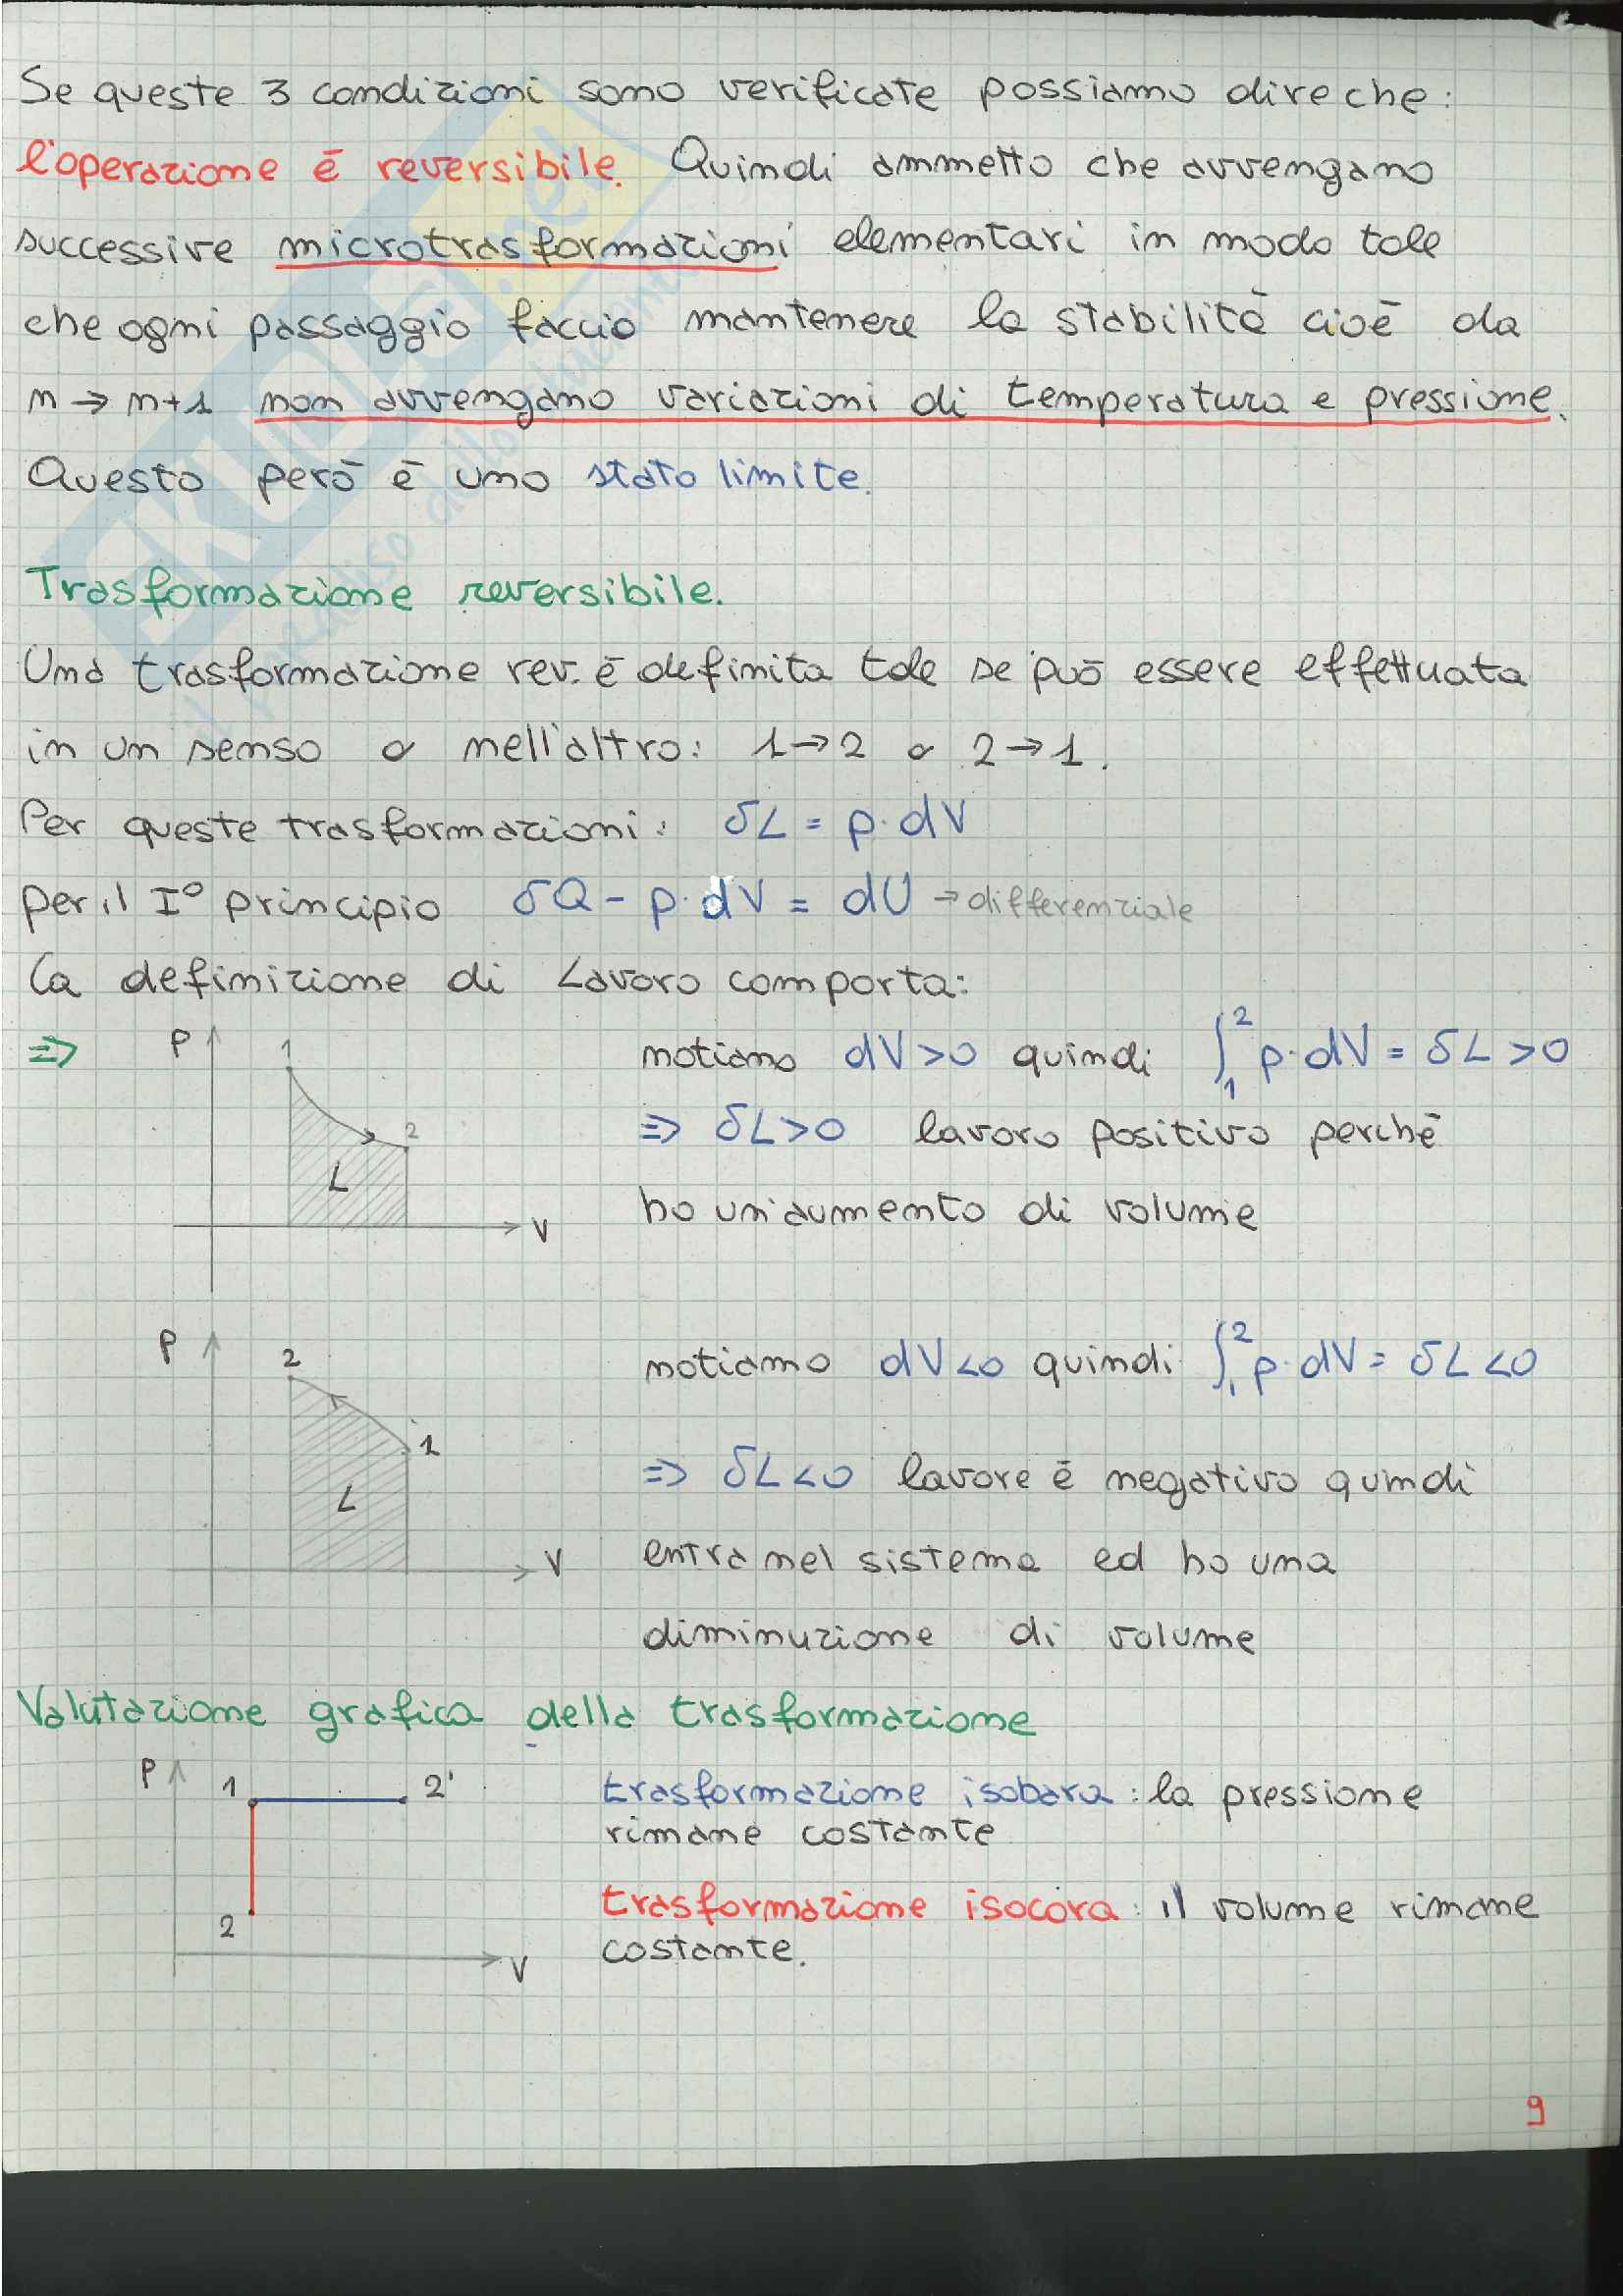 Se queste 3 condizioni sono verificate possiamo dire che:
l'operazione è reversibile. Quindi ammetto che avvengano
successive microtrasformazioni elementari in modo tale
che ogni passaggio faccia mantenere la stabilità cioè da
n → n+1 non avvengano variazioni di temperatura e pressione.
Questo però è uno stato limite.
Trasformazione reversibile.
Una trasformazione rev. è definita tale se può essere effettuata
in un senso o nell'altro: 1→2 o 2→1.
Per queste trasformazioni: δL = p·dV
per il I° principio δQ - p·dV = dU → differenziale
La definizione di Lavoro comporta:
⇒ P 1 2 L V
notiamo dV>0 quindi ∫₁² p·dV = δL >0
⇒ δL>0 lavoro positivo perchè
ho un'aumento di volume
P 2 1 L V
notiamo dV<0 quindi ∫₁² p·dV = δL <0
⇒ δL<0 lavore è negativo quindi
entra nel sistema ed ho una
diminuzione di volume
Valutazione grafica della trasformazione
P 1 2' 2 V
trasformazione isobara: la pressione
rimane costante
trasformazione isocora: il volume rimane
costante.
9
SKUOLA.net
il paradiso dello studente